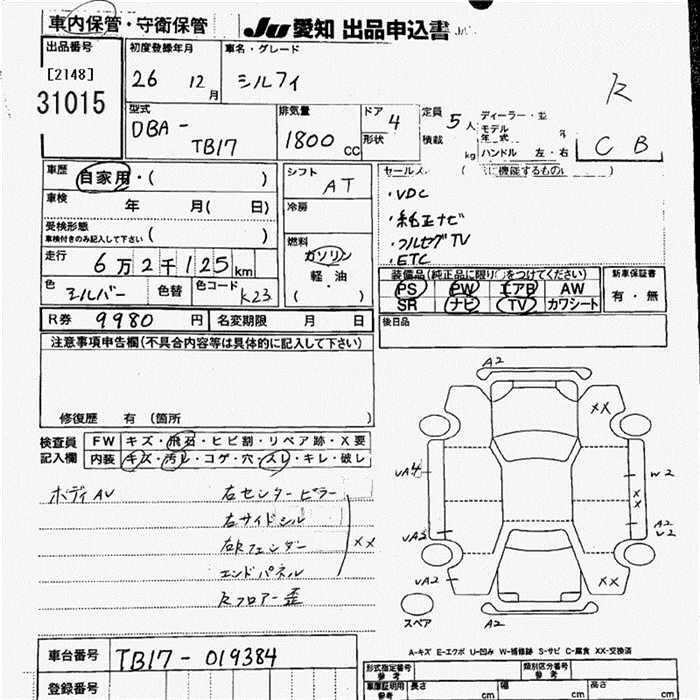 車内保管・守衛保管
JU愛知 出品申込書
出品番号 初度登録年月 車名・グレード
[2148] 26 12月 シルフィ R
31015
型式 排気量 ドア 定員 5人 ディーラー・並
DBA- 4 モデル
年式
TB17 1800cc 形状 積載 kg ハンドル 左・右 C B
車歴 自家用・( ) シフト AT
車検 年 月( 日) 冷房 ・VDC
受検形態 ・純正ナビ
車検付きのみ記入して下さい ( ) 燃料 ・フルセグTV
走行 6万2千125km ガソリン ・ETC
軽・油
( )
装備品(純正品に限り○をつけてください) 新車保証書
色 シルバー 色替 色コード K23 PS PW エアB AW 有・無
SR ナビ TV カワシート
R券 9980円 名変期限 月 日 後日品
注意事項申告欄(不具合内容等は具体的に記入して下さい)
修復歴 有 (箇所 )
検査員 FW キズ・飛石・ヒビ割・リペア跡・X要
記入欄 内装 キズ・汚レ・コゲ・穴・スレ・キレ・破レ
ボディAU 右センターピラー
右サイドシル
右Rフェンダー XX
エンドパネル
Rフロアー歪
A2
XX
UA4 W2
X
X
UA2 A2
U2
UA2 XX
スペア A2
A-キズ E-エクボ U-凹み W-補修跡 S-サビ C-腐食 XX-交換済
車台番号 TB17-019384
登録番号
形式指定番号 参考 類別区分番号 参考
車庫証明用 参考 長さ cm 幅 cm 高さ cm